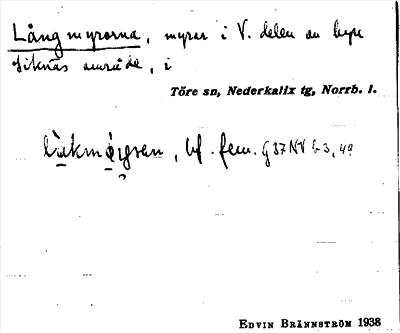 Långmyrorna, myrar i V. delen av byn
Siknäs område, i
Töre sn, Nederkalix tg, Norrb. l.
bf. fem. G 37 NV b 3, 49
EDVIN BRÄNNSTRÖM 1938